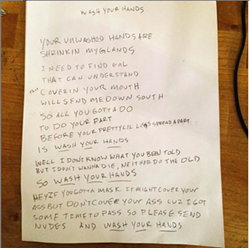 WASH YOUR HANDS
YOUR UNWASHED HANDS ARE
SHRINKIN MY GLANDS
I NEED TO FIND GAL
THAT CAN UNDERSTAND
COVERIN YOUR MOUTH
WILL SEND ME DOWN SOUTH
SO ALL YOU GOTTA DO
TO DO YOUR PART
BEFORE YOUR PRETTY LIL LEGS SPREAD APART
IS WASH YOUR HANDS
WELL I DON'T KNOW WHAT YOU BEEN TOLD
BUT I DON'T WANNA DIE, NEITHER DO THE OLD
SO WASH YOUR HANDS
HEY IF YOU GOTTA MASK IT MIGHT COVER YOUR
ASS BUT DON'T COVER YOUR ASS CUZ I GOT
SOME TIME TO PASS SO PLEASE SEND
NUDES AND WASH YOUR HANDS